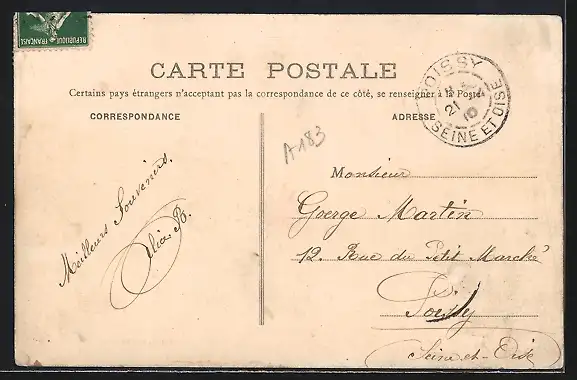 RÉPUBLIQUE FRANÇAISE
CARTE POSTALE
Certains pays étrangers n'acceptant pas la correspondance de ce côté, se renseigner à la Poste
CORRESPONDANCE
ADRESSE
POISSY
21
10
SEINE ET OISE
A183
Meilleurs Souvenirs.
Monsieur
George Martin
12. Rue du Petit Marché
Poissy
Seine-et-Oise